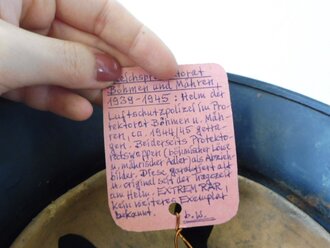 Reichsprotektorat
Böhmen und Mähren,
1939-1945: Helm der
Luftschutzpolizei im Pro-
tektorat Böhmen u. Mäh-
ren, ca. 1944/45 getra-
gen. Beiderseits Protekto-
ratswappen (böhmischer Löwe
u. mährischer Adler) als Abzieh-
bilder. Diese garantiert alt
u. original seit der Tragezeit
am Helm. EXTREM RAR!
kein weiteres Exemplar
bekannt. b.W.